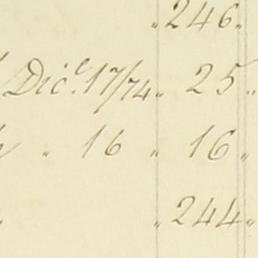 „ 246 „
Dic.e 17/74 „ 25 „
„ 16 „ 16 „
„ 244 „